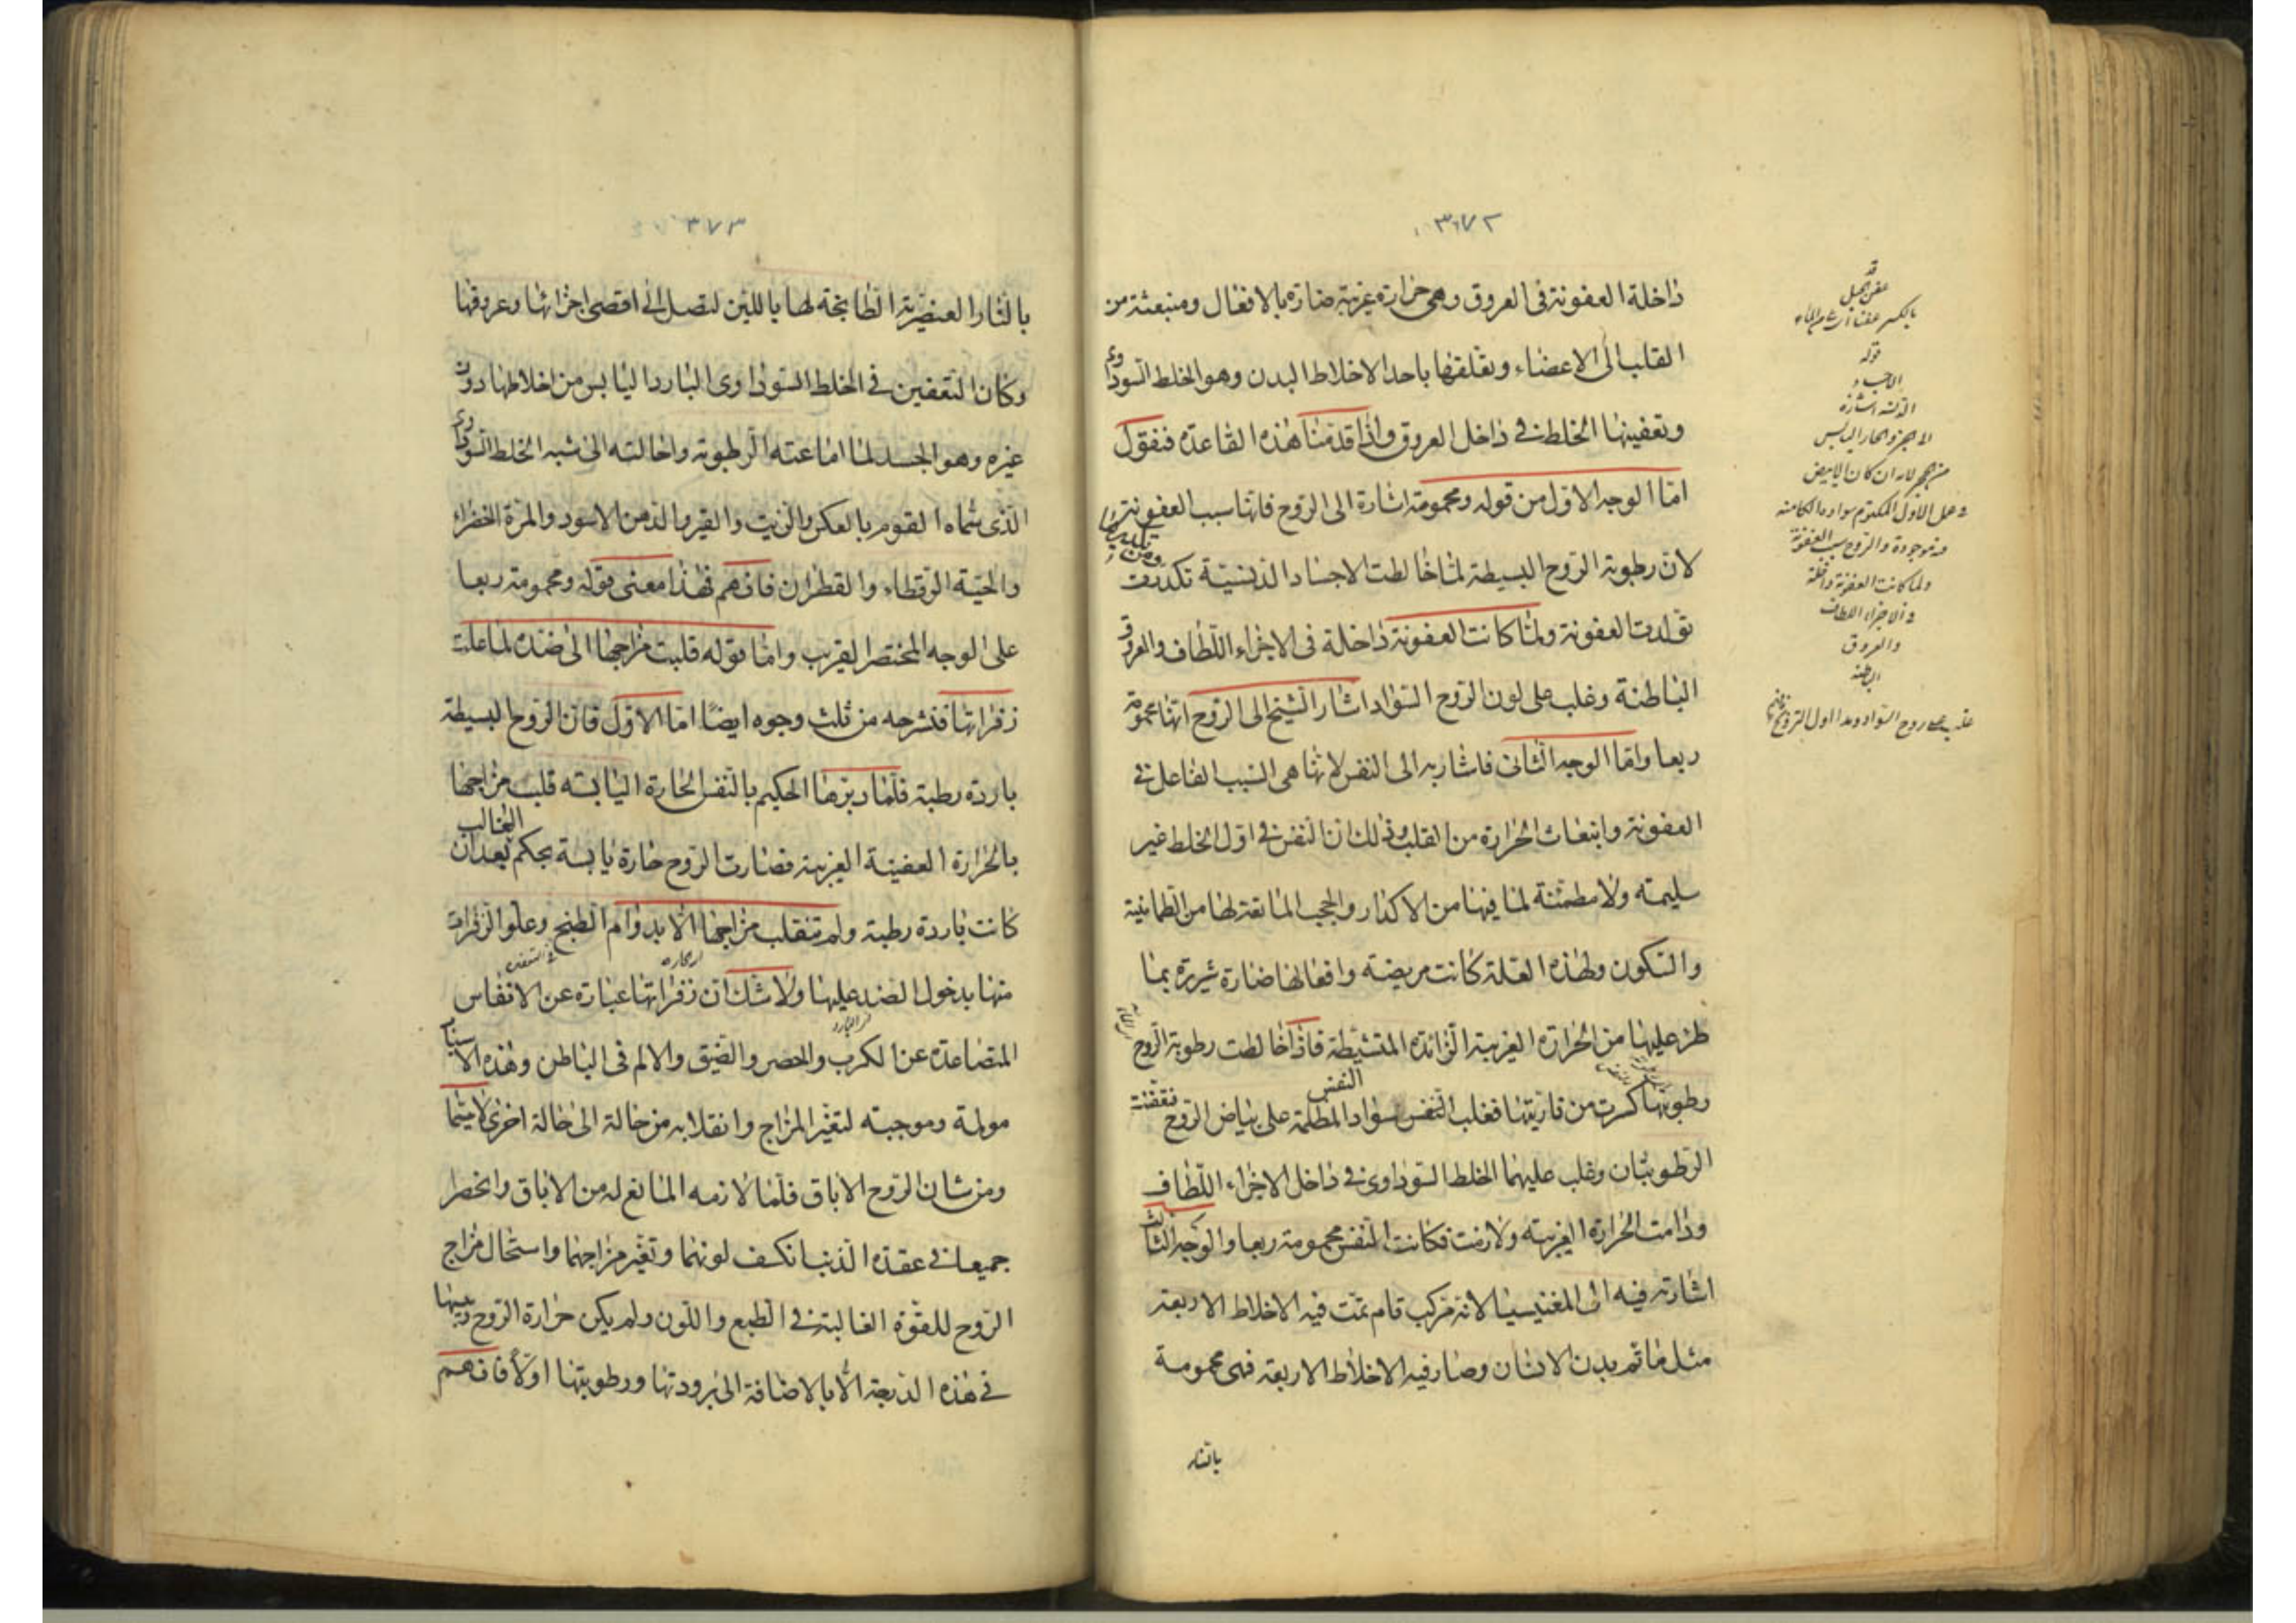 ٣٧٢
داخلة العفونة فى العروق وهى حرارة غريبة ضارة بالافعال ومنبعثة من
القلب الى الاعضاء وتعلقها باحد الاخلاط البدن وهو الخلط السوداوى
وتعفينها الخلط فى داخل العروق واذا قدمنا هذه القاعدة فنقول
امّا الوجه الاوّل من قوله ومحمومة اشارة الى الروح فانها سبب العفونة
لان رطوبة الروح البسيطة لما خالطت الاجساد الدنسيّة تكدرت ومن تكديرها
تولدت العفونة ولما كانت العفونة داخلة فى الاجزاء اللّطاف والعروق
الباطنة وغلب على لون الروح السّواد اشار الشيخ الى الروح انها محمومة
ربعا وامّا الوجه الثانى فاشار به الى النفس لانها هى السبب الفاعل فى
العفونة وانبعاث الحرارة من القلب وذلك ان النفس فى اول الخلط غير
سليمة ولا مطمئنة لما فيها من الاكدار والحجب المانعة لها من الطمانينة
والسكون ولهذه العلة كانت مريضة وافعالها ضارة شريرة بما
طرء عليها من الحرارة الغريبة الزائدة المتشيطة فاذا خالطت رطوبة الروح
رطوبتها كسرت من ناريتها فغلب النفس سواد النفس المظلمة على بياض الروح فتعفنت
الرطوبتان وغلب عليهما الخلط السوداوى فى داخل الاجزاء اللّطاف
ودامت الحرارة الغريبة ولازمت فكانت النفس محمومة ربعا والوجه الثالث
اشارته فيه الى المغنيسيا لانه مركب قام تمّت فيه الاخلاط الاربعة
مثل ما تم بدن الانسان وصار فيه الاخلاط الاربعة فهى محمومة
بالنار
قوله
ولما كانت العفونة داخلة
فى الاجزاء اللطاف
والعروق
الباطنة
٣٧٣
بالنار العنصرية الطابخة لها باللين لتصل الى اقصى اجزائها وعروقها
وكان التعفين فى الخلط السّوداوى البارد اليابس من اخلاطها دون
غيره وهو الجسد لما اماعته الرطوبة واحالته الى شبه الخلط السّوداوى
الّذى سماه القوم بالعكر والزيت والقير والدهن الاسود والمرة الخضراء
والحيّة الرقطاء والقطران فافهم فهذا معنى قوله ومحمومة ربعا
على الوجه المختصر القريب وامّا قوله قلبت مزاجها الى ضده لما علت
زفراتها فنشرحه من ثلث وجوه ايضًا امّا الاوّل فان الروح البسيطة
باردة رطبة فلما دبرها الحكيم بالنفس الحارة اليابسة قلبت مزاجها
بالحرارة العفينة الغريبة فصارت الروح حارة يابسة بحكم الغالب بعد ان
كانت باردة رطبة ولم تنقلب مزاجها الّا بدوام الطبخ وعلو الزفرات
منها بدخول الضد عليها ولا شك ان زفراتها عبارة عن الانفاس
المتصاعدة عن الكرب والحصر والضيق والالم فى الباطن وهذه الاسباب
مولمة وموجبة لتغير المزاج وانقلابه من حالة الى حالة اخرى لا سيّما
ومن شان الروح الاباق فلما لازمه المانع له من الاباق وانحصرا
جميعا فى عقدة الذنب انكسف لونهما وتغير مزاجهما واستحال مزاج
الروح للقوة الغالبة فى الطبع واللّون ولم يكن حرارة الروح ويبسها
فى هذه الدّرجة الّا بالاضافة الى برودتها ورطوبتها اوّلًا فافهم